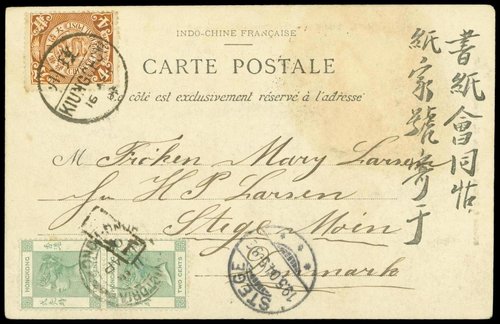 INDO-CHINE FRANÇAISE
CARTE POSTALE
Ce côté est exclusivement réservé à l'adresse
M Fröken Mary Larsen
H P Larsen
Stege Möen
Danmark
KIUNGCHOW
16
HONGKONG
TWO CENTS
VICTORIA
STEGE
書紙會同帖
紙家號寄于